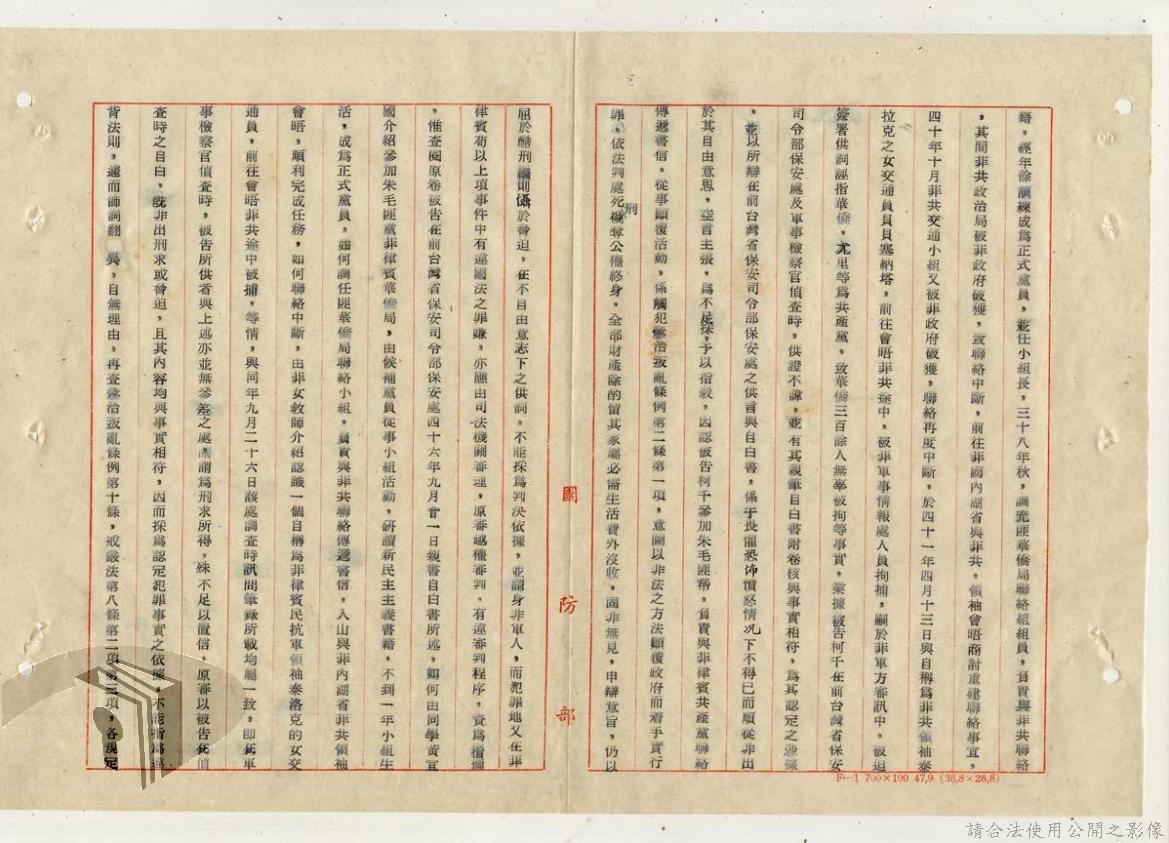 籍，經年餘訓練成爲正式黨員，並任小組長，三十八年秋，調充匪華僑局聯絡組組員，負責與菲共聯絡
，其間菲共政治局被菲政府破獲，致聯絡中斷，前往菲國內湖省與菲共，領袖會晤商討重建聯絡事宜，
四十年十月菲共交通小組又被菲政府破獲，聯絡再度中斷，於四十一年四月十三日與自稱爲菲共領袖泰
拉克之女交通員員貝塞納塔，前往會晤菲共途中，被菲軍事情報處人員拘捕，嗣於菲軍方審訊中，被迫
簽署供詞誣指華僑，尤里等爲共產黨，致華僑三百餘人無辜被拘等事實，業據被告柯千在前台灣省保安
司令部保安處及軍事檢察官偵查時，供證不諱，並有其親筆自白書附卷核與事實相符，爲其認定之憑據
，並以所辯在前台灣省保安司令部保安處之供言與自白書，係于畏懼恐怖憤怒情况下不得已而順從非出
於其自由意思，空言主張，爲不足採，予以指駁，因認被告柯千參加朱毛匪幫，負責與菲律賓共產黨聯絡
傳遞書信，從事顚覆活動，係觸犯懲治叛亂條例第二條第一項，意圖以非法之方法顚覆政府而着手實行
罪，依法判處死刑褫奪公權終身，全部財產除酌留其家屬必需生活費外沒收，固非無見，申辯意旨，仍以
屈於酷刑繼則懾於脅迫，在不自由意志下之供詞，不能採爲判決依據，並謂身非軍人，而犯罪地又在菲
律賓苟以上項事件中有違國法之罪嫌，亦應由司法機關審理，原審越權審判，有違審判程序，資爲指摘
，惟查閱原卷被告在前台灣省保安司令部保安處四十六年九月廿一日親書自白書所述，如何由同學黃宜
國介紹參加朱毛匪黨菲律賓華僑局，由候補黨員從事小組活動，研讀新民主主義書籍，不到一年小組生
活，成爲正式黨員，如何調任匪華僑局聯絡小組，負責與菲共聯絡傳遞書信，入山與菲內湖省菲共領袖
會晤，順利完成任務，如何聯絡中斷，由菲女教師介紹認識一個自稱爲菲律賓民抗軍領袖泰洛克的女交
通員，前往會晤菲共途中被捕，等情，與同年九月二十六日該處調查時訊問筆錄所載均屬一致，卽在軍
事檢察官偵查時，被告所供者與上述亦並無參差之處，謂爲刑求所得，殊不足以置信，原審以被告在偵
查時之自白，旣非出刑求或脅迫，且其內容均與事實相符，因而採爲認定犯罪事實之依據，不能指爲違
背法則，遽而飾詞翻異，自無理由，再查懲治叛亂條例第十條，戒嚴法第八條第二項第三項，各規定
國防部
F—1 700×100 47.9 (38.8×26.8)
請合法使用公開之影像